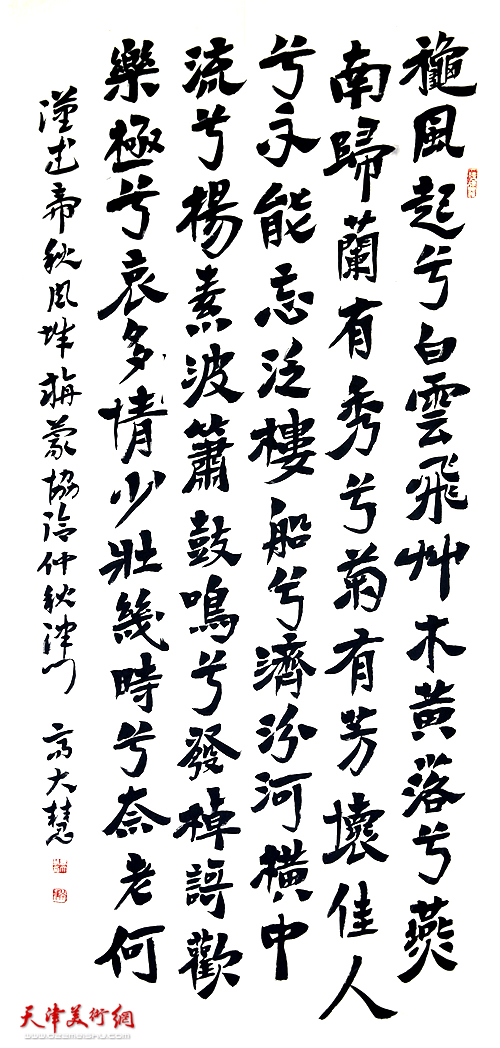 穐風起兮白雲飛艸木黃落兮燕
南歸蘭有秀兮菊有芳懷佳人
兮不能忘泛樓船兮濟汾河橫中
流兮楊素波簫鼓鳴兮發棹謌歡
樂極兮哀多情少壯幾時兮奈老何
漢武帝秋風辭旃蒙協洽仲秋津門
高大慧
天津美術網